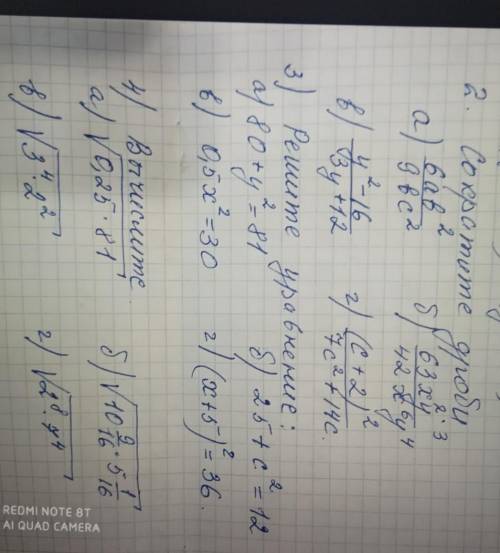 2. Сократите дроби
а) 6ab²/9bc² б) 63x²y³/42x⁶y⁴
в) y²-16/3y+12 г) (c+2)²/7c²+14c.
3) Решите уравнение:
а) 80+y²=81 б) 25+c²=12
в) 0,5x²=30 г) (x+5)²=36.
4) Вычислите
а) √0,25·81 б) √10 9/16 · 5 1/16
в) √3⁴·2² г) √2⁸·
REDMI NOTE 8T
AI QUAD CAMERA